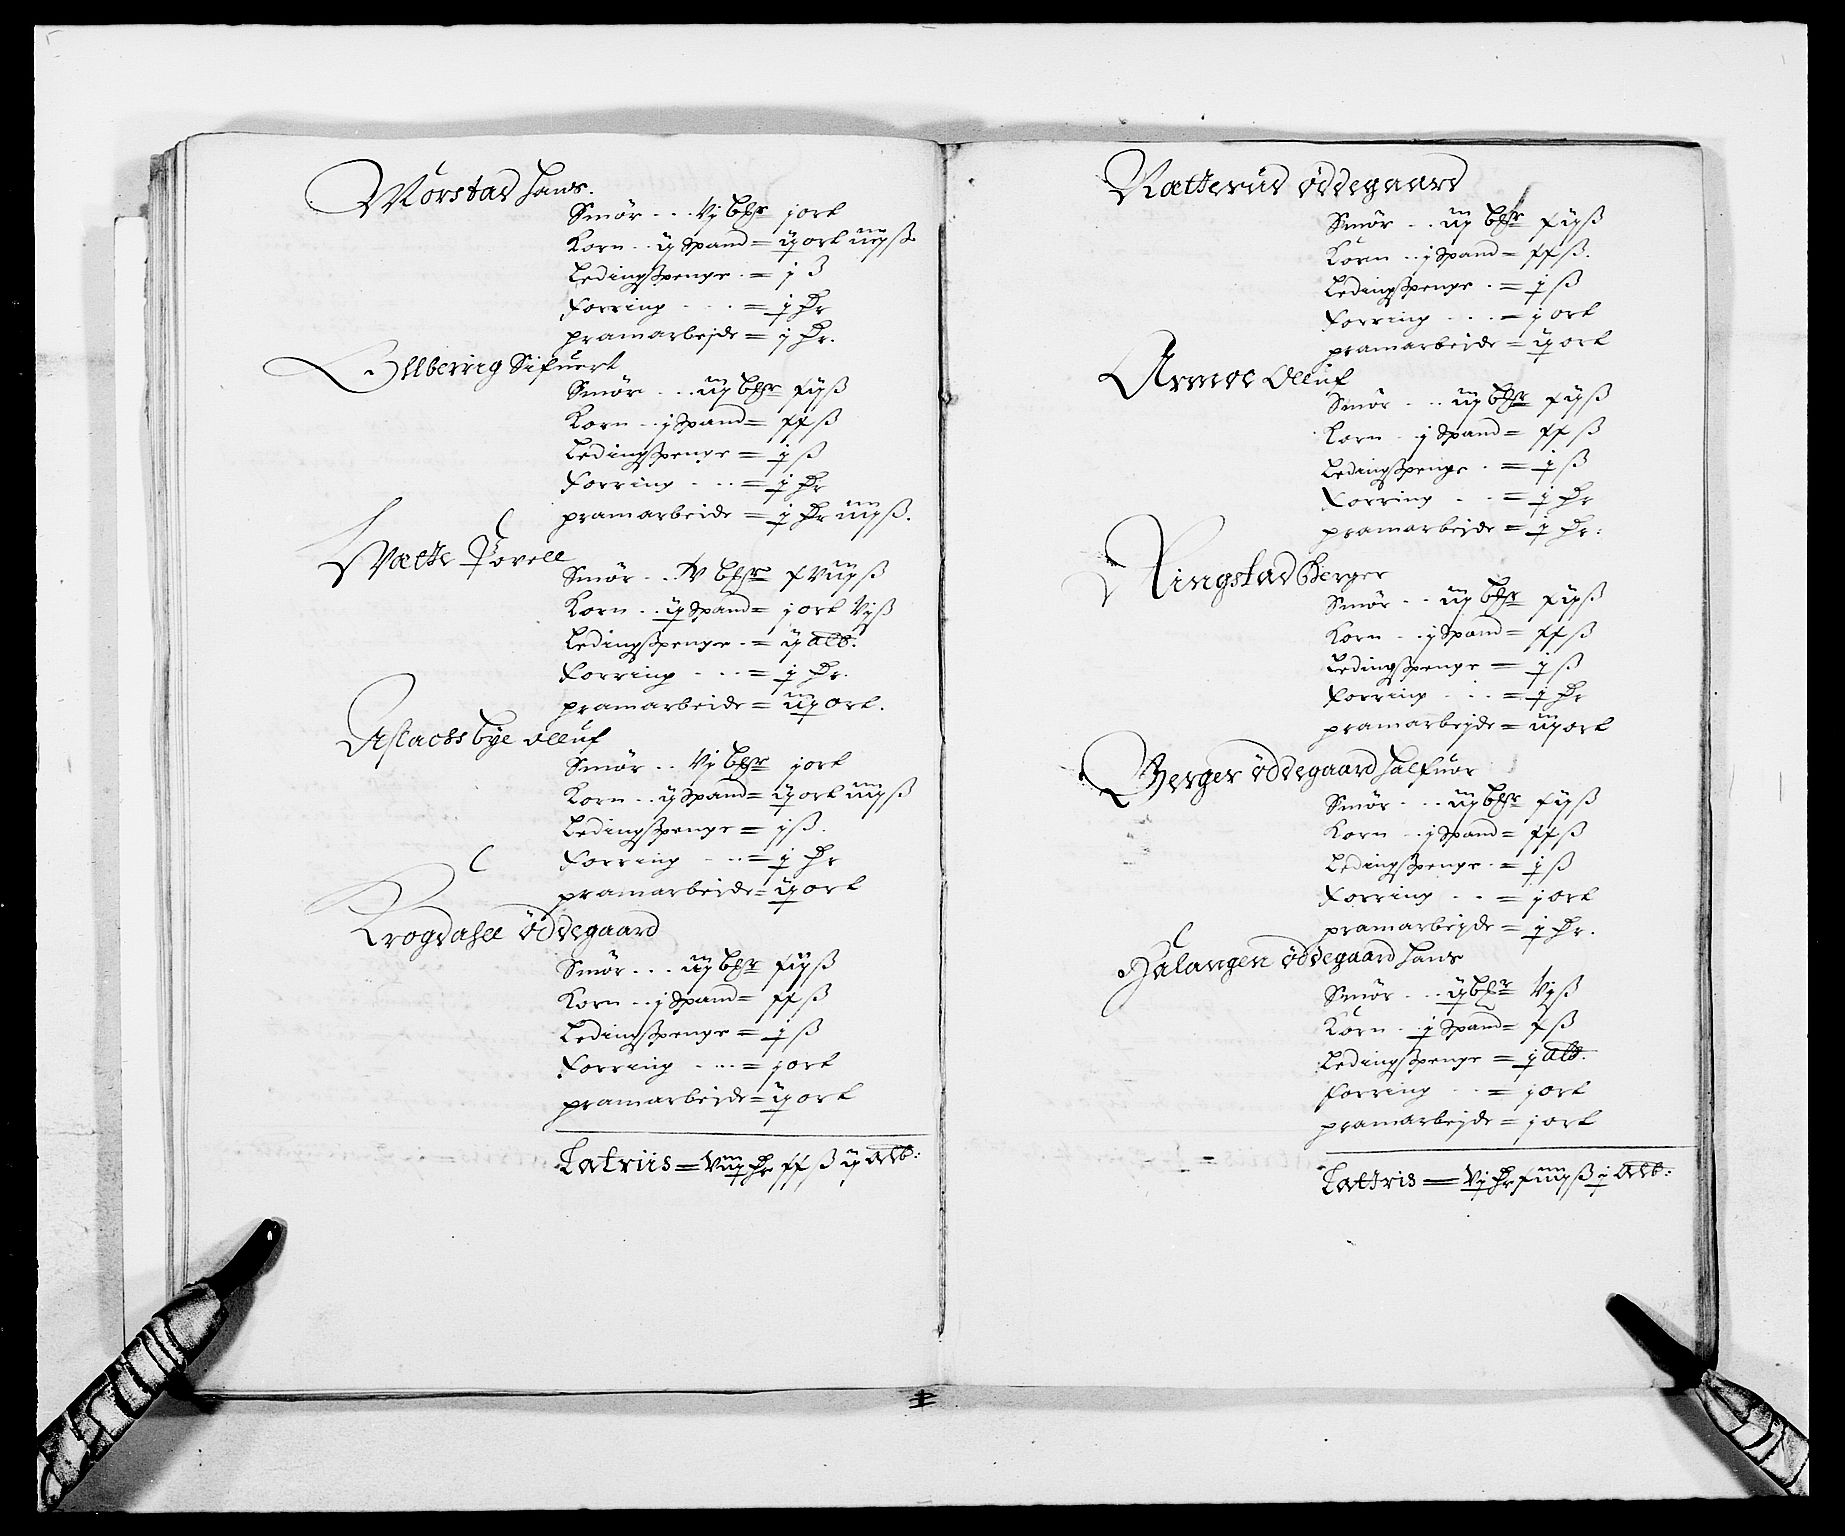 Morstad Hans.
Smør . . . Vj bpr j ort
Korn . . ij Spand = ij ort iiij ß.
Ledingsspenge . = j ß
Forring . . . = j Dr
pramarbejde = j Dr.
Ellberrig Sifuert
Smør . . . iij bpr xij ß
Korn . . j Spand = xx ß
Ledingsspenge = j ß
Forring . . . = j Dr
pramarbeide = j Dr iiij ß.
Wætte Povell
Smør . . bpr xviij ß
Korn . . ij Spand = j ort Vj ß
Ledingsspenge . = ij alb:
Forring . . . = j Dr.
pramarbeide = iij ort.
Aslachsbye Olluf
Smør . . Vj bpr j ort
Korn . . ij Spand = ij ort iiij ß
Ledingsspenge = j ß.
Forring . . . = j Dr
pramarbeide = ij ort
Krogdahll Øddegaard
Smør . . . iij bpr xij ß
Korn . . j Spand = xx ß
Ledingsspenge = j ß
Forring . . . = j ort
pramarbejde = ij ort
Latriis = Viij Dr xx ß ij alb:
Rætterud Øddegaard
Smør . . iij bpr xij ß
Korn . . j Spand = xx ß.
Ledingsspenge . = j ß
Forring . . . = j ort
pramarbeide = ij ort
Armoe Olluf
Smør . . . iij bpr xij ß
Korn . . j Spand = xx ß
Ledingsspenge . = j ß
Forring . . . = j Dr
pramarbejde = j Dr:
Ringstad Berger
Smør . . iij bpr xij ß
Korn . . j Spand = xx ß
Ledingsspenge = j ß
Forring . . . = j Dr
pramarbejde = iij ort
Berger Øddegaard Halfuor
Smør . . . iij bpr xij ß
Korn . . j Spand = xx ß
Ledingsspenge . = j ß
Forring . . = j ort
pramarbejde = j Dr.
Halangen Øddegaard Hans
Smør . . . ij bpr Vj ß
Korn . . j Spand = x ß
Ledingsspenge = j alb.
Forring . . = j ort
pramarbejde = j ort
Lattris = Vj Dr xiiij ß j alb: